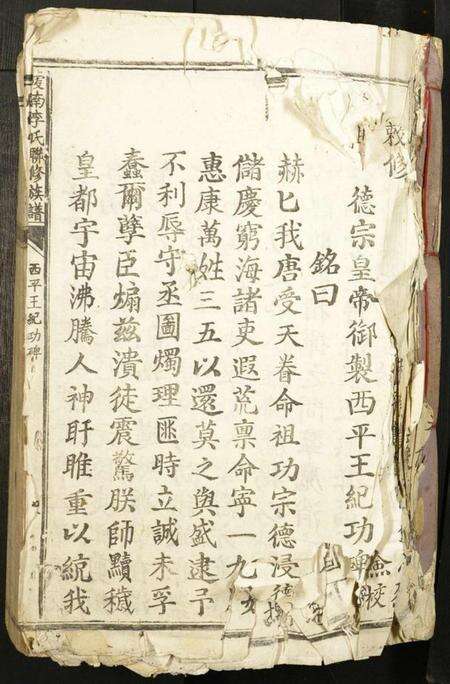 敕修
德宗皇帝御製西平王紀功
銘曰
赫匕我唐受天眷命祖功宗德浸
儲慶窮海諸吏遐荒稟命寧一九
惠康萬姓三五以還莫之與盛逮予
不利辱守丕圖燭理匪時立誠未孚
蠢爾孽臣煽茲潰徒震驚朕師黷穢
皇都宇宙沸騰人神盱睢重以統我
南李氏聯修族譜
西平王紀功碑